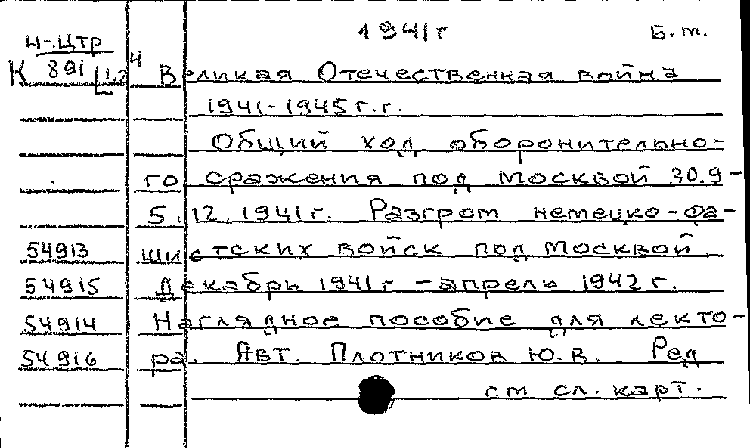 1941г Б.м.
Ц-Цтр
К 891 4 Великая Отечественная война
1941-1945 г.г.
Общий ход оборонительно-
го сражения под Москвой 30.9-
5.12.1941г. Разгром немецко-фа-
54913 шистских войск под Москвой
54915 Декабрь 1941г - апрель 1942 г.
54914 Наглядное пособие для лекто-
54916 ра. Авт. Плотников Ю.В. Ред
см сл. карт.